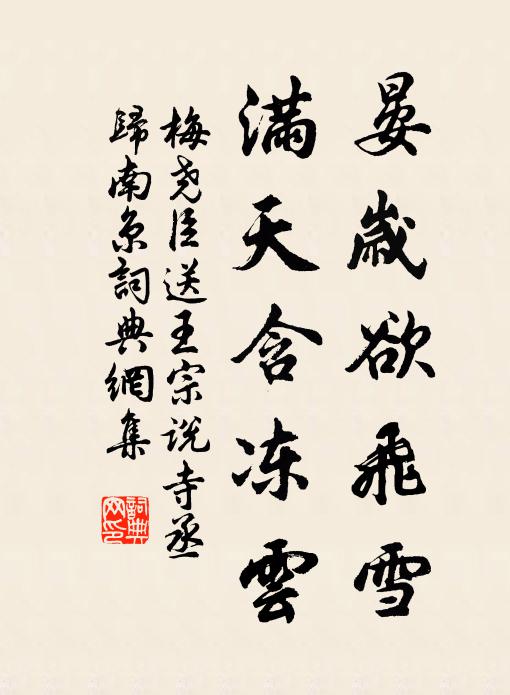 晏歲欲飛雪
滿天含冻雲
梅堯臣送王宗说寺丞
歸南京詞典網集
詞典網印